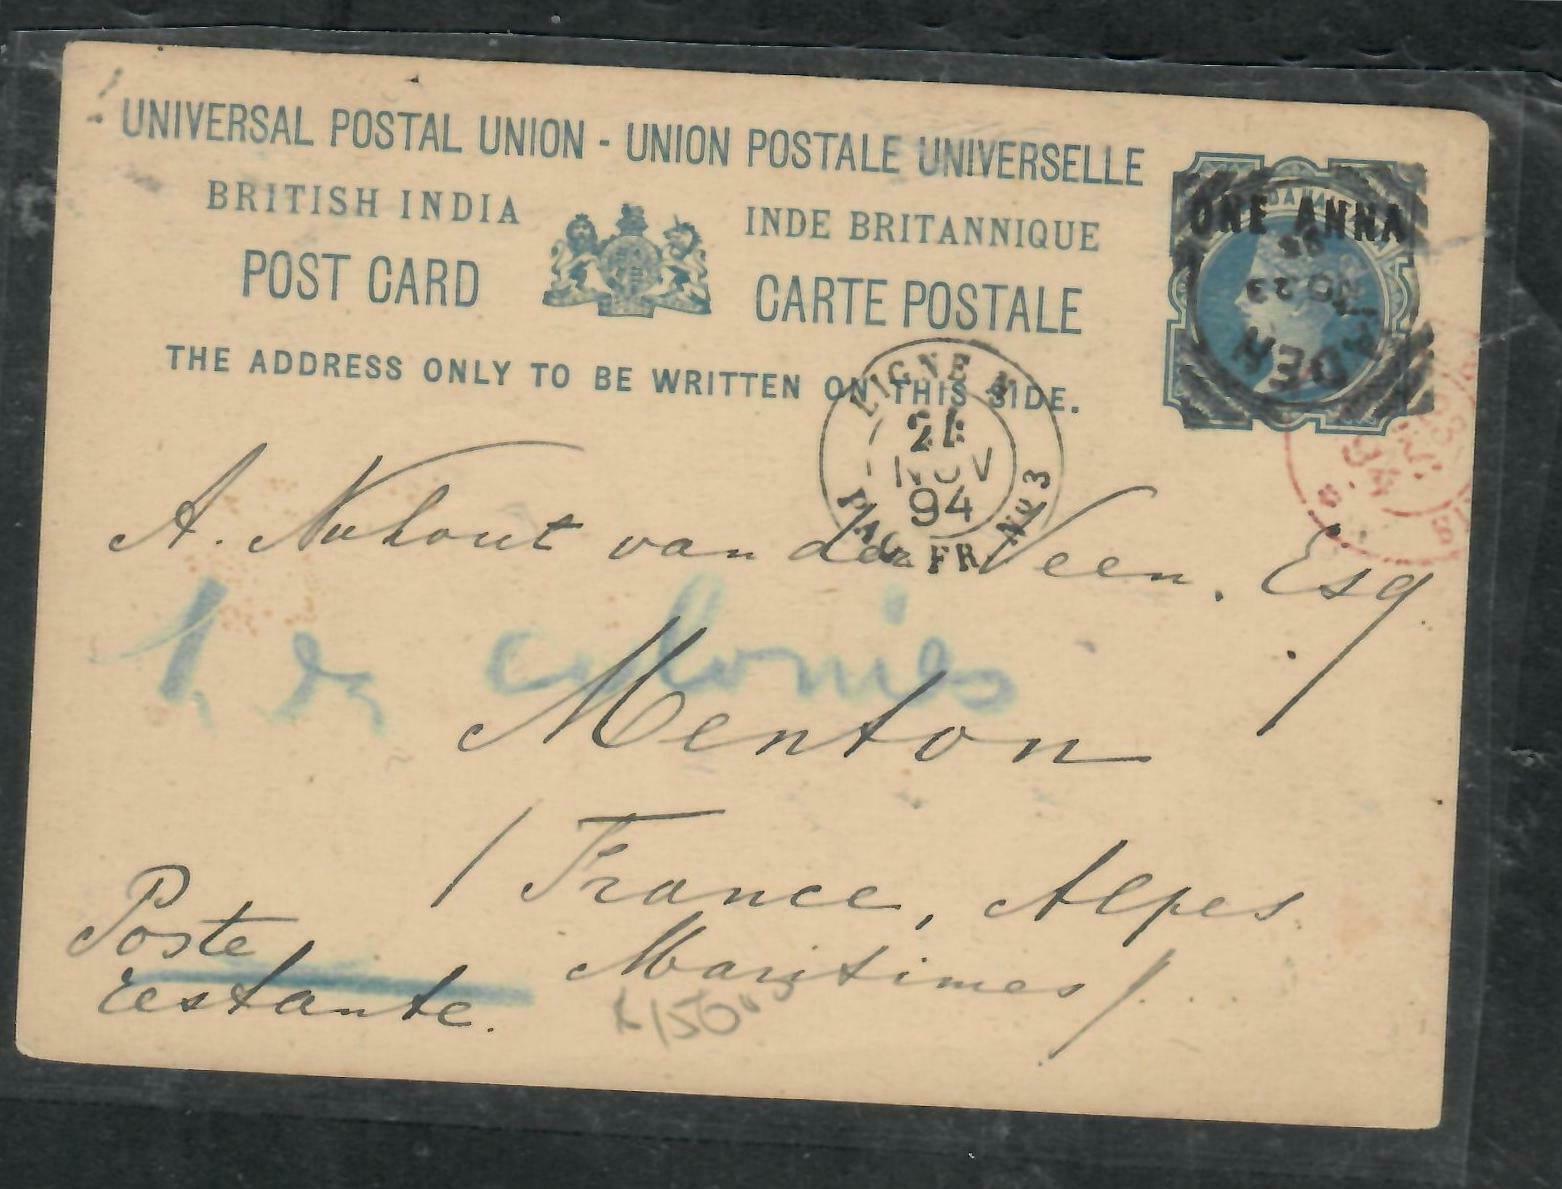 UNIVERSAL POSTAL UNION - UNION POSTALE UNIVERSELLE
BRITISH INDIA INDE BRITANNIQUE
POST CARD CARTE POSTALE
THE ADDRESS ONLY TO BE WRITTEN ON THIS SIDE.
ONE ANNA
ADEN
NO 23
LIGNE N
24
NOV
94
PAQ. FR. No 3
A. Nuhout van der Veen. Esq
colonies
Menton
/ France, Alpes
Maritimes /.
Poste
restante.
150